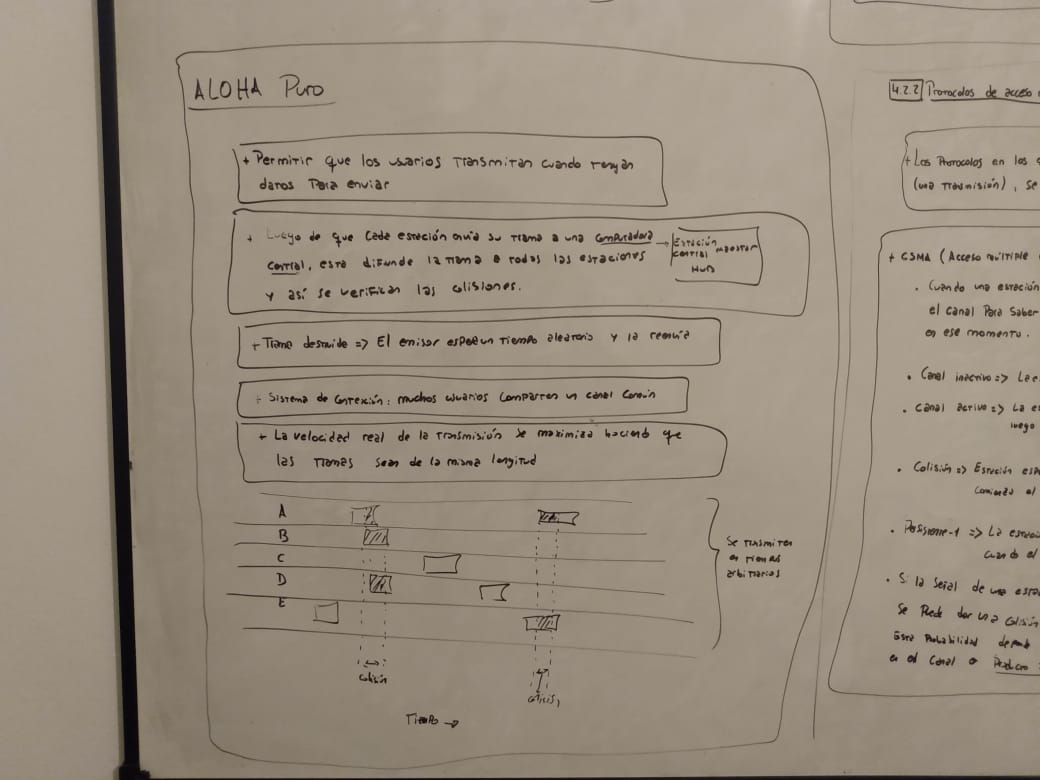 ALOHA Puro
+ Permitir que los usuarios transmitan cuando tengan
datos para enviar
+ Luego de que cada estación envía su trama a una computadora
central, esta difunde la trama a todas las estaciones
y así se verifican las colisiones.
→ Estación
central
HUB
+ Trama destruida => El emisor espera un tiempo aleatorio y la reenvía
+ Sistema de contención: muchos usuarios comparten un canal común
+ La velocidad real de la transmisión se maximiza haciendo que
las tramas sean de la misma longitud
A
B
C
D
E
Se transmiten
en tiempos
arbitrarios
colisión
colisión
Tiempo →
4.2.2 Protocolos de acceso
+ Los Protocolos en los
(una transmisión), se
+ CSMA (Acceso múltiple
• Cuando una estación
el canal para saber
en ese momento.
• Canal inactivo =>
• Canal activo => La
luego
• Colisión => Estación
comienza el
• Persistente-1 => La estación
cuando el
• Si la señal de una
se puede dar una colisión
Esta probabilidad
en el canal o Producto